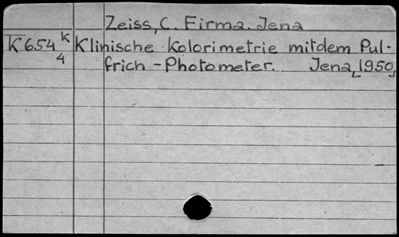 Zeiss, C. Firma. Jena
K 654 K/4 Klinische Kolorimetrie mit dem Pul-
frich-Photometer. Jena, [1950]